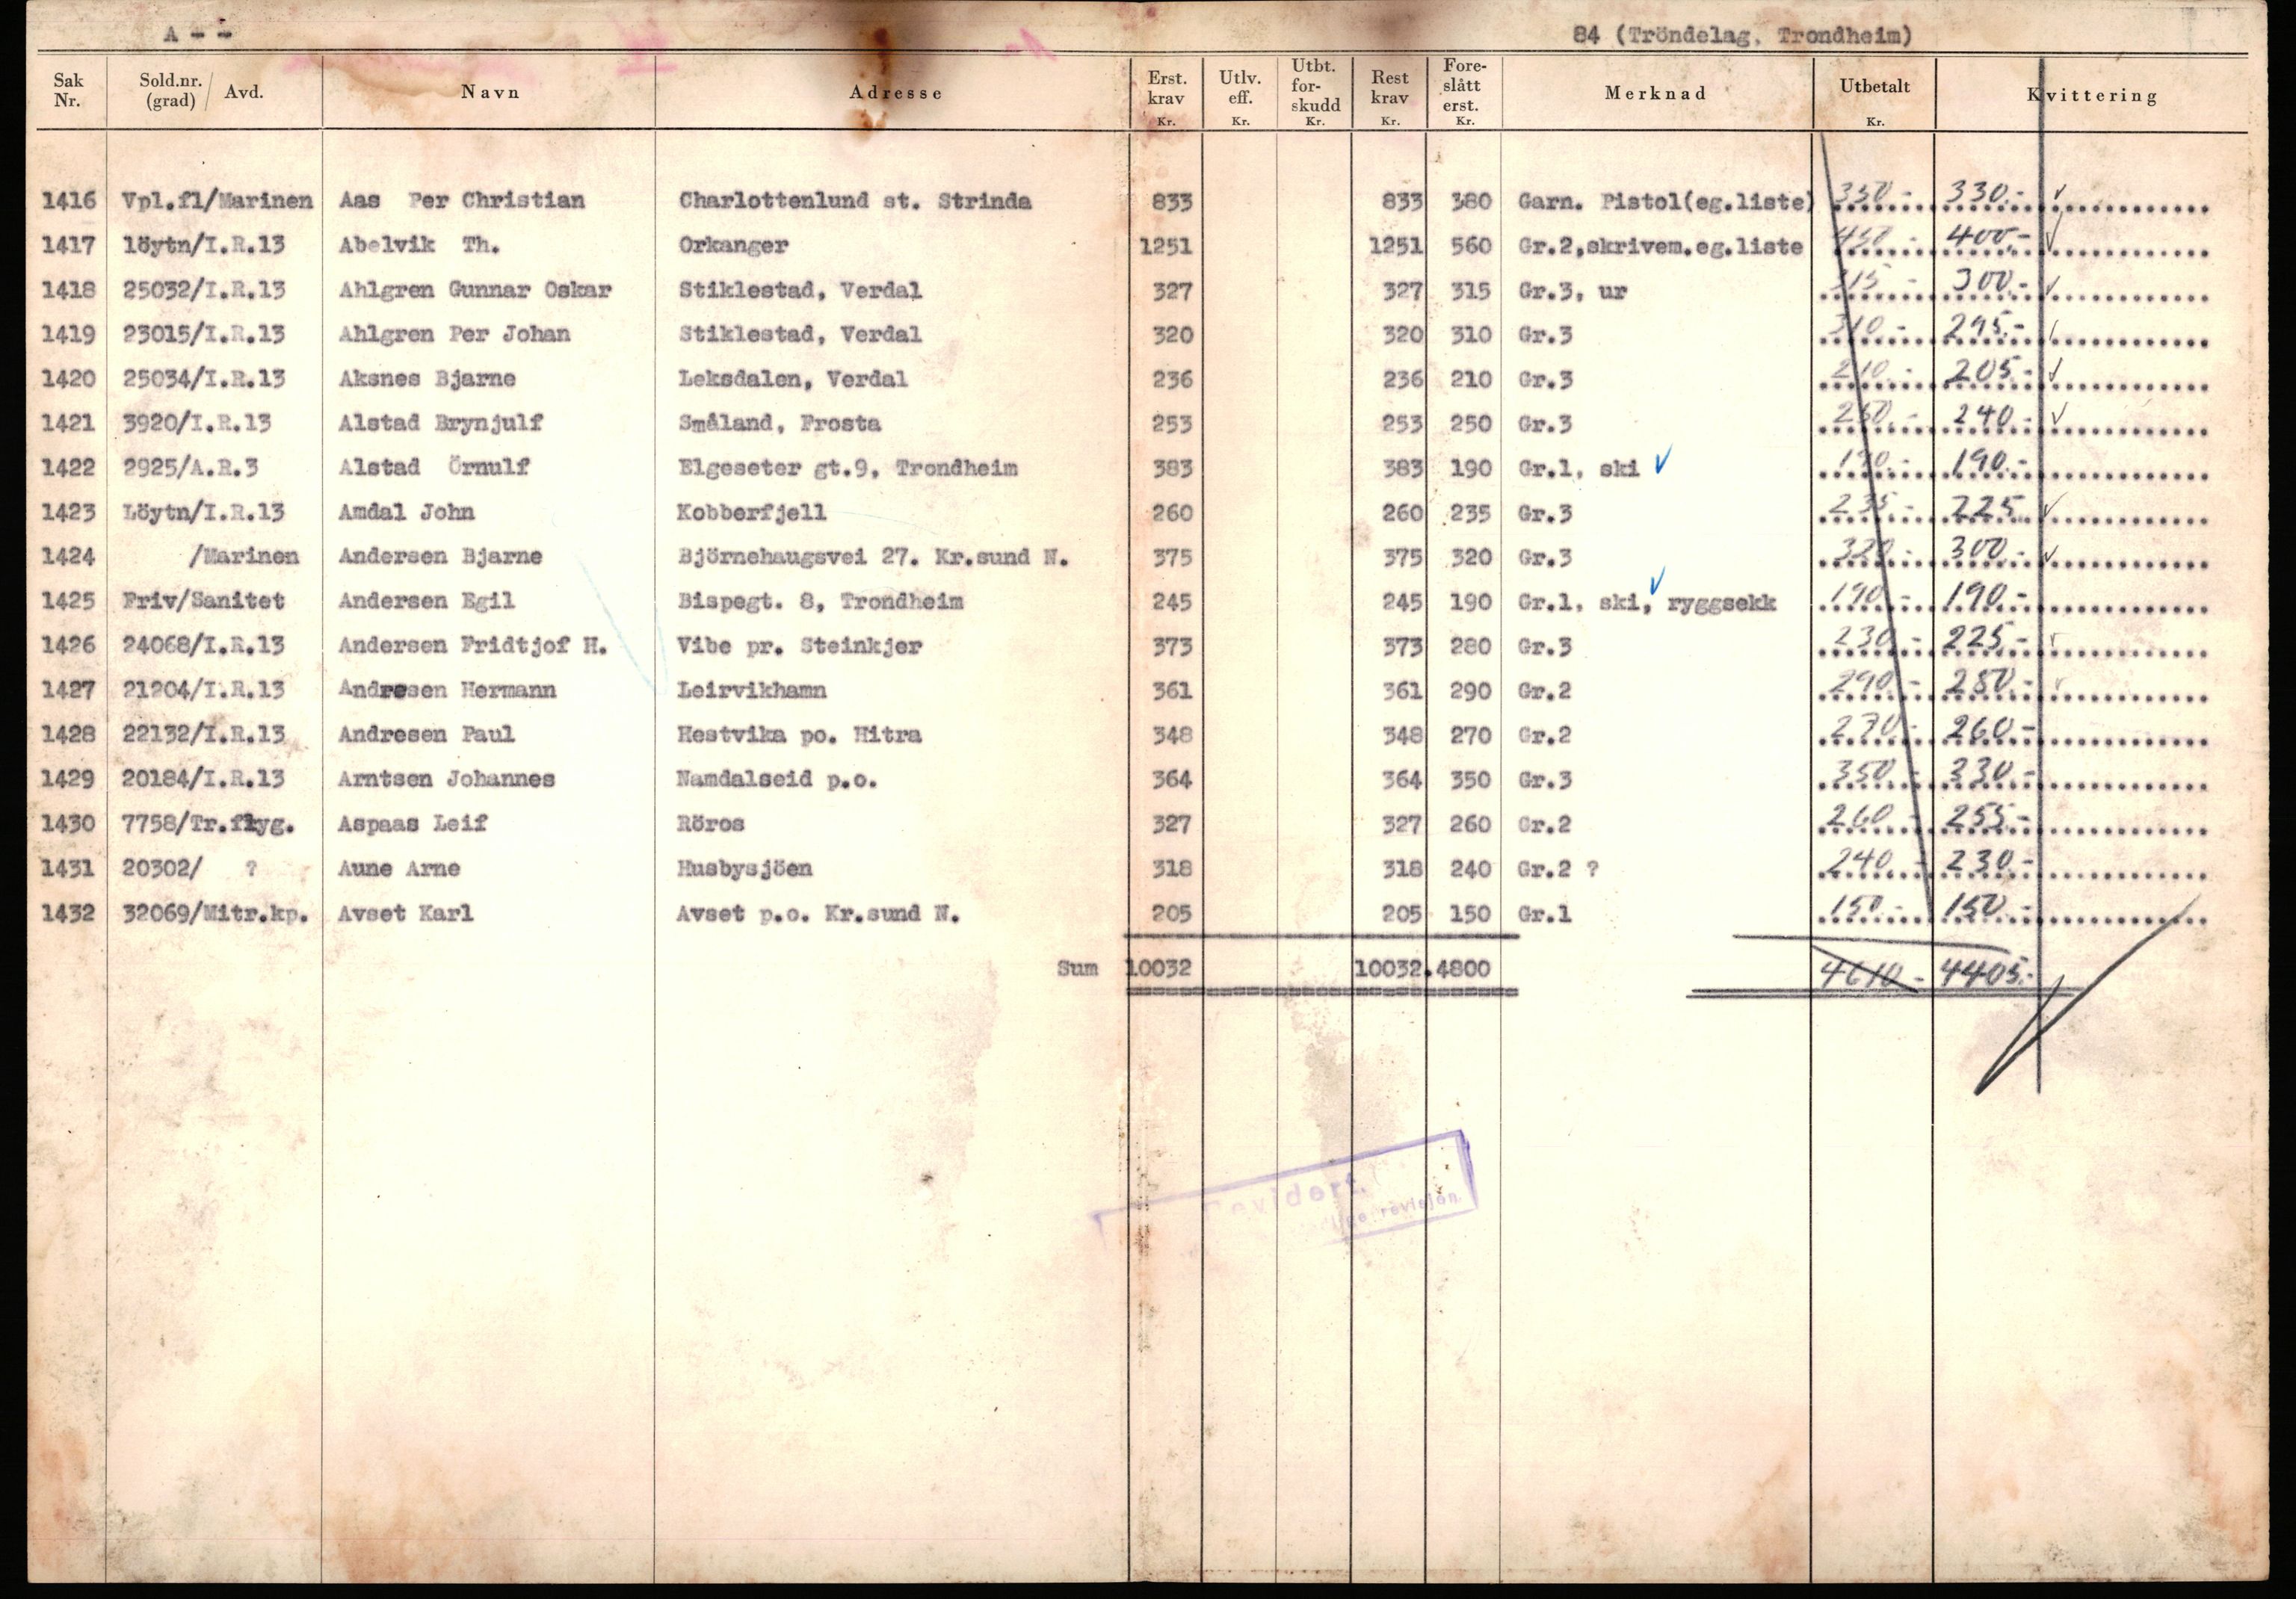 A - -
84 (Tröndelag, Trondheim)
Sak Nr. Sold.nr. (grad) / Avd. Navn Adresse Erst. krav Kr. Utlv. eff. Kr. Utbt. for- skudd Kr. Rest krav Kr. Fore- slått erst. Kr. Merknad Utbetalt Kr. Kvittering
1416 Vpl.fl/Marinen Aas Per Christian Charlottenlund st. Strinda 833 833 380 Garn. Pistol(eg.liste) 350.- 330.- ✓
1417 löytn/I.R.13 Abelvik Th. Orkanger 1251 1251 560 Gr.2,skrivem.eg.liste 450.- 400.- ✓
1418 25032/I.R.13 Ahlgren Gunnar Oskar Stiklestad, Verdal 327 327 315 Gr.3, ur 315.- 300.- ✓
1419 23015/I.R.13 Ahlgren Per Johan Stiklestad, Verdal 320 320 310 Gr.3 310.- 295.- ✓
1420 25034/I.R.13 Aksnes Bjarne Leksdalen, Verdal 236 236 210 Gr.3 210.- 205.- ✓
1421 3920/I.R.13 Alstad Brynjulf Småland, Frosta 253 253 250 Gr.3 250.- 240.- ✓
1422 2925/A.R.3 Alstad Örnulf Elgeseter gt.9, Trondheim 383 383 190 Gr.1, ski ✓ 190.- 190.-
1423 Löytn/I.R.13 Amdal John Kobberfjell 260 260 235 Gr.3 235.- 225 ✓
1424 /Marinen Andersen Bjarne Björnehaugsvei 27. Kr.sund N. 375 375 320 Gr.3 320.- 300.- ✓
1425 Friv/Sanitet Andersen Egil Bispegt. 8, Trondheim 245 245 190 Gr.1, ski, ✓ ryggsekk 190.- 190.-
1426 24068/I.R.13 Andersen Fridtjof H. Vibe pr. Steinkjer 373 373 280 Gr.3 230.- 225.- ✓
1427 21204/I.R.13 Andresen Hermann Leirvikhamn 361 361 290 Gr.2 290.- 280.- ✓
1428 22132/I.R.13 Andresen Paul Hestvika po. Hitra 348 348 270 Gr.2 270.- 260.-
1429 20184/I.R.13 Arntsen Johannes Namdalseid p.o. 364 364 350 Gr.3 350.- 330.-
1430 7758/Tr.flyg. Aspaas Leif Röros 327 327 260 Gr.2 260.- 255.-
1431 20302/ ? Aune Arne Husbysjöen 318 318 240 Gr.2 ? 240.- 230.-
1432 32069/Mitr.kp. Avset Karl Avset p.o. Kr.sund N. 205 205 150 Gr.1 150.- 150.-
Sum 10032 10032.4800 4610.- 4405.-
Revidert.
revisjon.